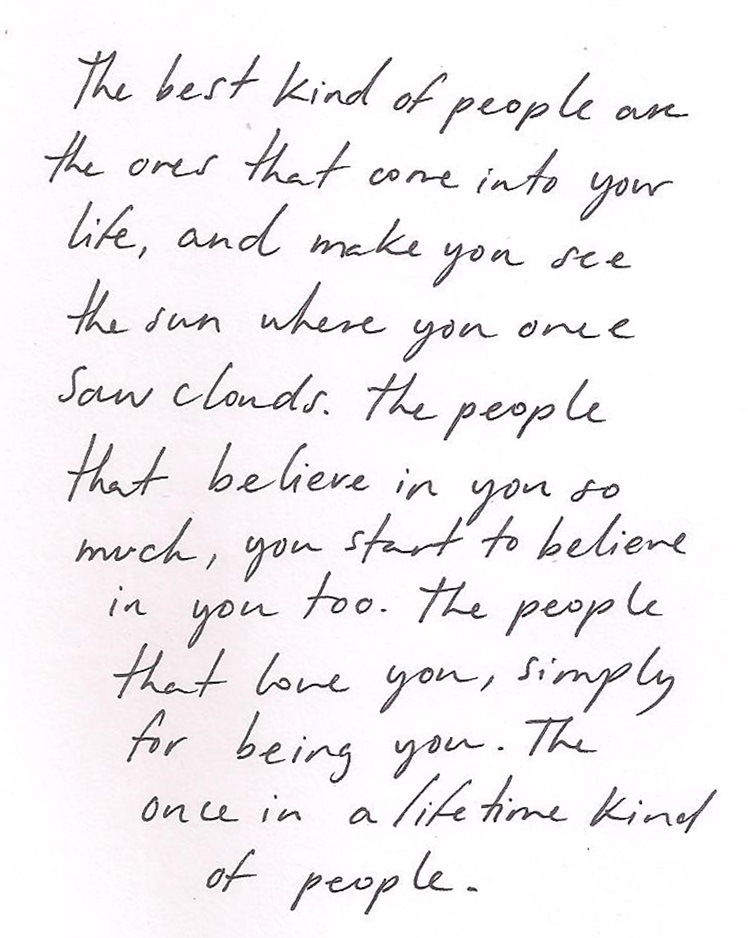 The best kind of people are
the ones that come into your
life, and make you see
the sun where you once
saw clouds. The people
that believe in you so
much, you start to believe
in you too. The people
that love you, simply
for being you. The
once in a lifetime kind
of people.